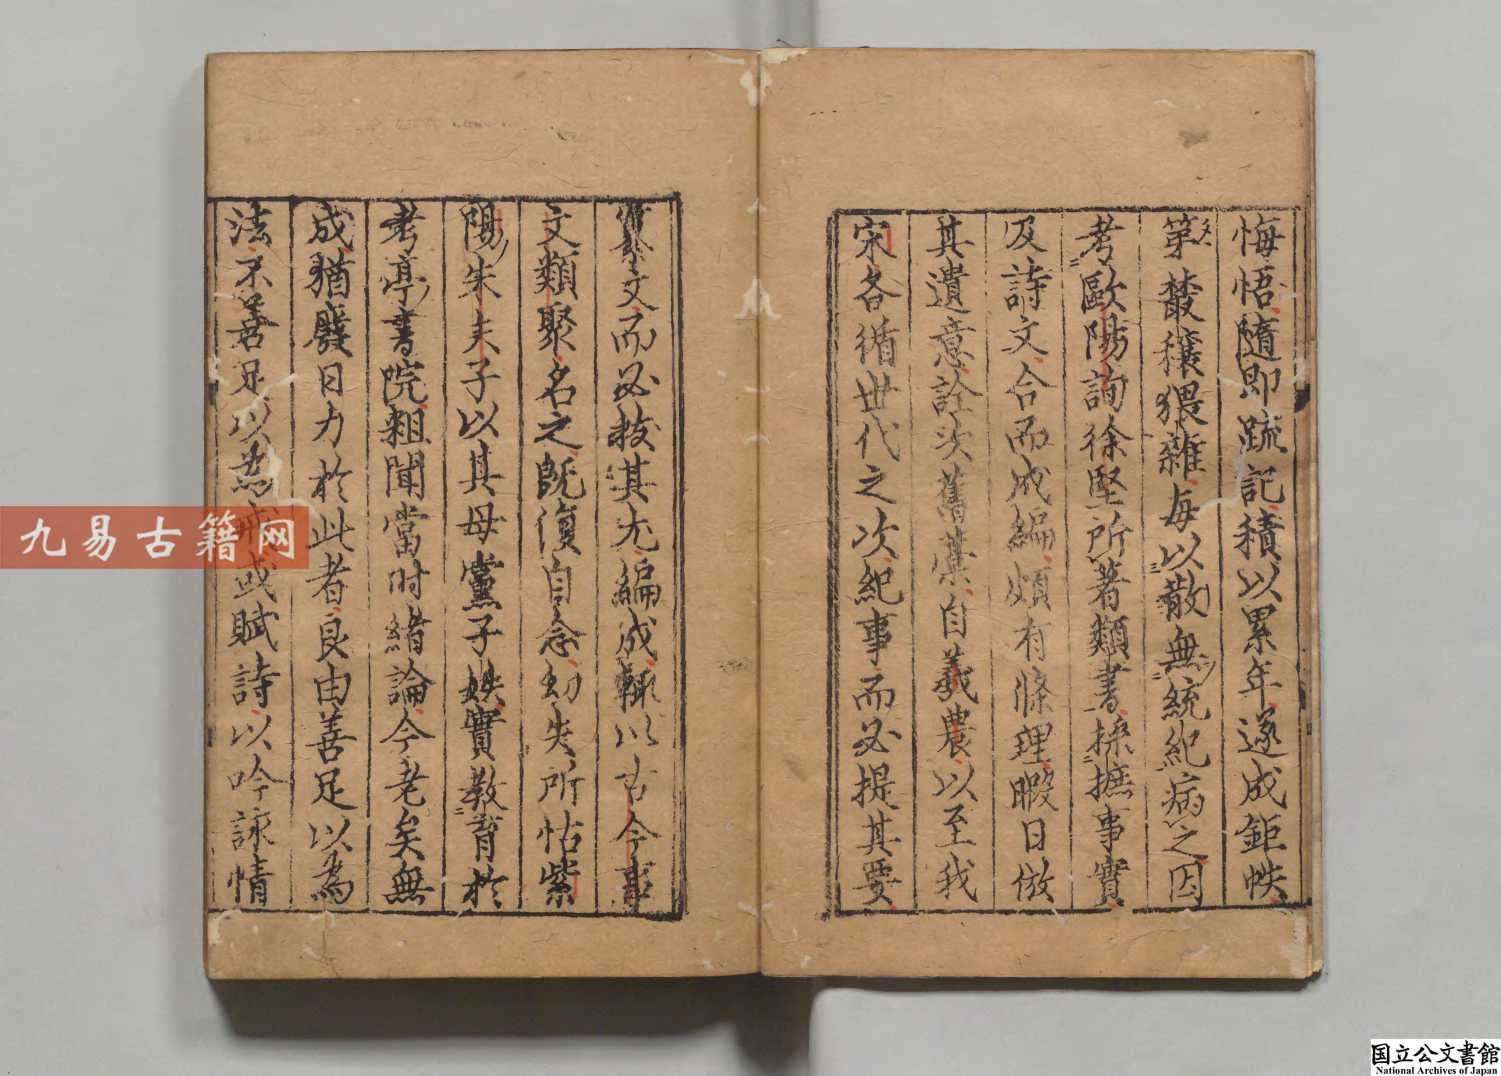 悔悟隨即疏記積以累年遂成鉅帙
第叢穰猥雜每以散無統紀病之因
考歐陽詢徐堅所著類書採摭事實
及詩文合而成編頗有條理暇日倣
其遺意詮次舊藁自羲農以至我
宋各循世代之次紀事而必提其要
纂文而必拔其尤編成輙以古今事
文類聚名之旣復自念幼失所怙紫
陽朱夫子以其母黨子姪實教育於
考亭書院粗聞當时緒論今老矣無
成猶發日力於此者良由善足以為
法不善足以為戒或賦詩以吟詠情
九易古籍网
国立公文書館
National Archives of Japan